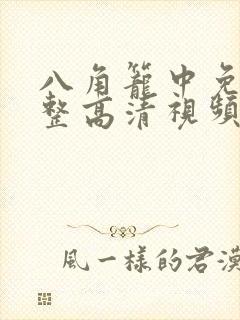 八角籠中免
整高清視頻
風一樣的君漠